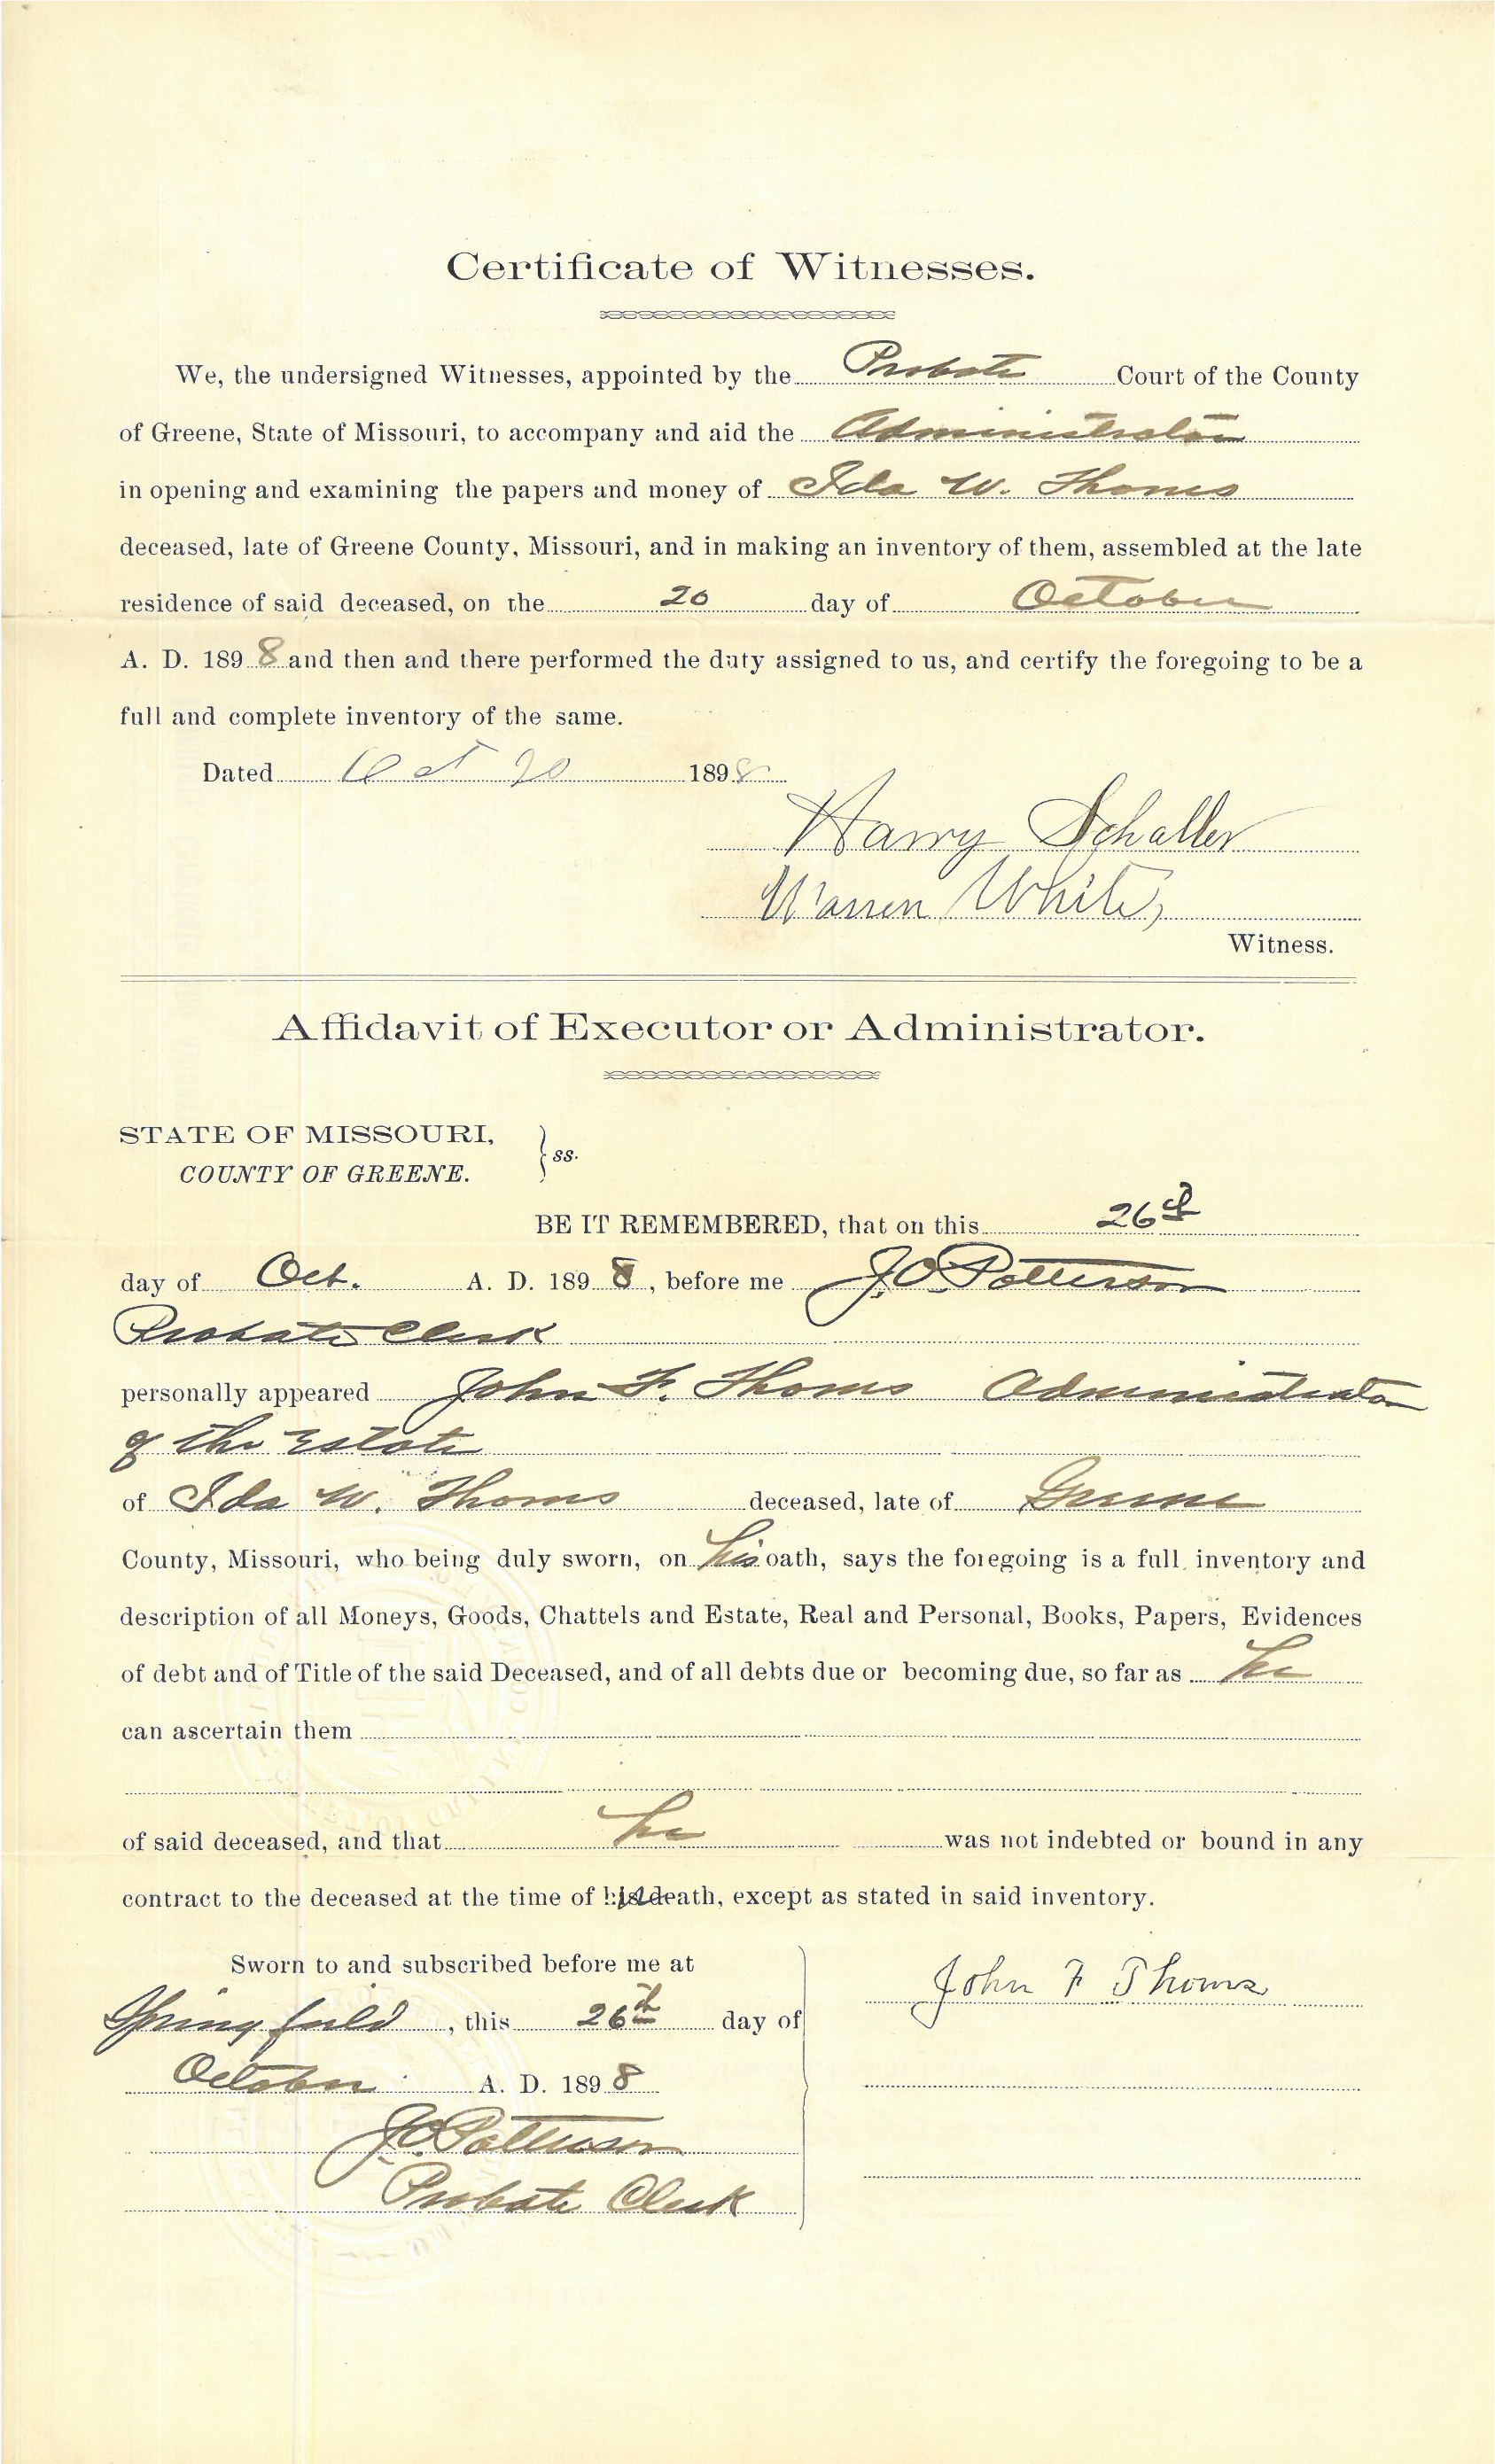 Certificate of Witnesses.
We, the undersigned Witnesses, appointed by the Probate Court of the County
of Greene, State of Missouri, to accompany and aid the Administrator
in opening and examining the papers and money of Ida W. Thoms
deceased, late of Greene County, Missouri, and in making an inventory of them, assembled at the late
residence of said deceased, on the 20 day of October
A. D. 1898 and then and there performed the duty assigned to us, and certify the foregoing to be a
full and complete inventory of the same.
Dated Oct 20 1898
Harry Schaller
Warren White,
Witness.
Affidavit of Executor or Administrator.
STATE OF MISSOURI,
COUNTY OF GREENE.
} ss.
BE IT REMEMBERED, that on this 26th
day of Oct. A. D. 1898, before me J.O. Patterson
Probate Clerk
personally appeared John F. Thoms Administrator
of the Estate
of Ida W. Thoms deceased, late of Greene
County, Missouri, who being duly sworn, on his oath, says the foregoing is a full inventory and
description of all Moneys, Goods, Chattels and Estate, Real and Personal, Books, Papers, Evidences
of debt and of Title of the said Deceased, and of all debts due or becoming due, so far as he
can ascertain them
of said deceased, and that he was not indebted or bound in any
contract to the deceased at the time of death, except as stated in said inventory.
Sworn to and subscribed before me at
Springfield, this 26th day of
October A. D. 1898
J.O. Patterson
Probate Clerk
John F Thoms